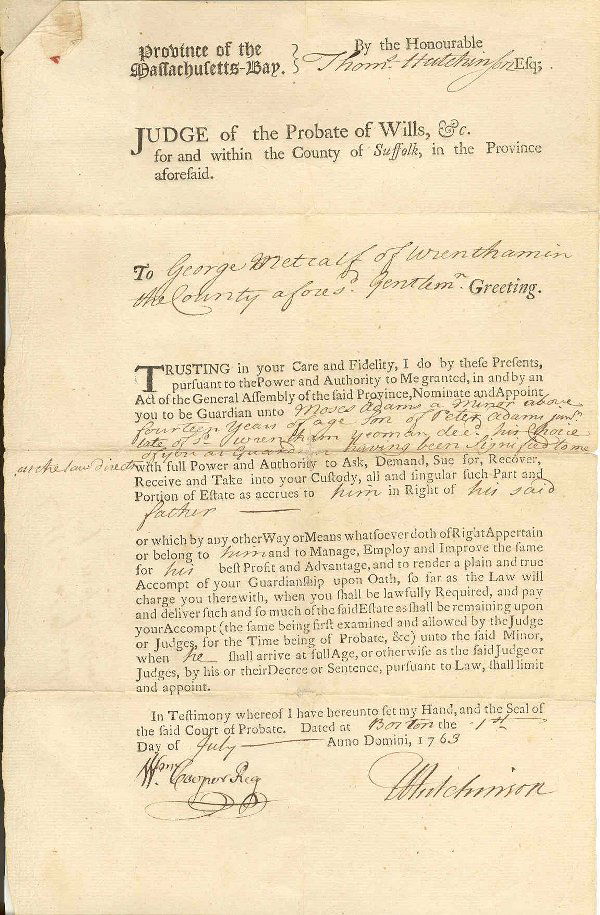 Province of the
Massachusetts-Bay.
By the Honourable
Thoms. Hutchinson Esq;
JUDGE of the Probate of Wills, &c.
for and within the County of Suffolk, in the Province
aforesaid.
To George Metcalf of Wrentham in
the County afores. Gentlemn. Greeting.
TRUSTING in your Care and Fidelity, I do by these Presents,
pursuant to the Power and Authority to Me granted, in and by an
Act of the General Assembly of the said Province, Nominate and Appoint
you to be Guardian unto Moses Adams a Minor above
fourteen years of age son of Peter Adams junr.
late of sd. Wrentham yeoman decd. his Choice
of you as Guardian having been signified to me
as the law directs
with full Power and Authority to Ask, Demand, Sue for, Recover,
Receive and Take into your Custody, all and singular such Part and
Portion of Estate as accrues to him in Right of his said
father
or which by any other Way or Means whatsoever doth of Right Appertain
or belong to him and to Manage, Employ and Improve the same
for his best Profit and Advantage, and to render a plain and true
Accompt of your Guardianship upon Oath, so far as the Law will
charge you therewith, when you shall be lawfully Required, and pay
and deliver such and so much of the said Estate as shall be remaining upon
your Accompt (the same being first examined and allowed by the Judge
or Judges, for the Time being of Probate, &c) unto the said Minor,
when he shall arrive at full Age, or otherwise as the said Judge or
Judges, by his or their Decree or Sentence, pursuant to Law, shall limit
and appoint.
In Testimony whereof I have hereunto set my Hand, and the Seal of
the said Court of Probate. Dated at Boston the 1st
Day of July Anno Domini, 1763
Wm Cooper Reg
T Hutchinson